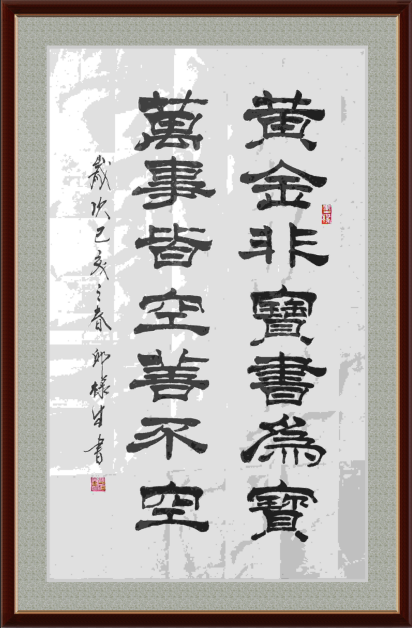 黃金非寶書為寶
萬事皆空善不空
歲次己亥之春 邱祿生書